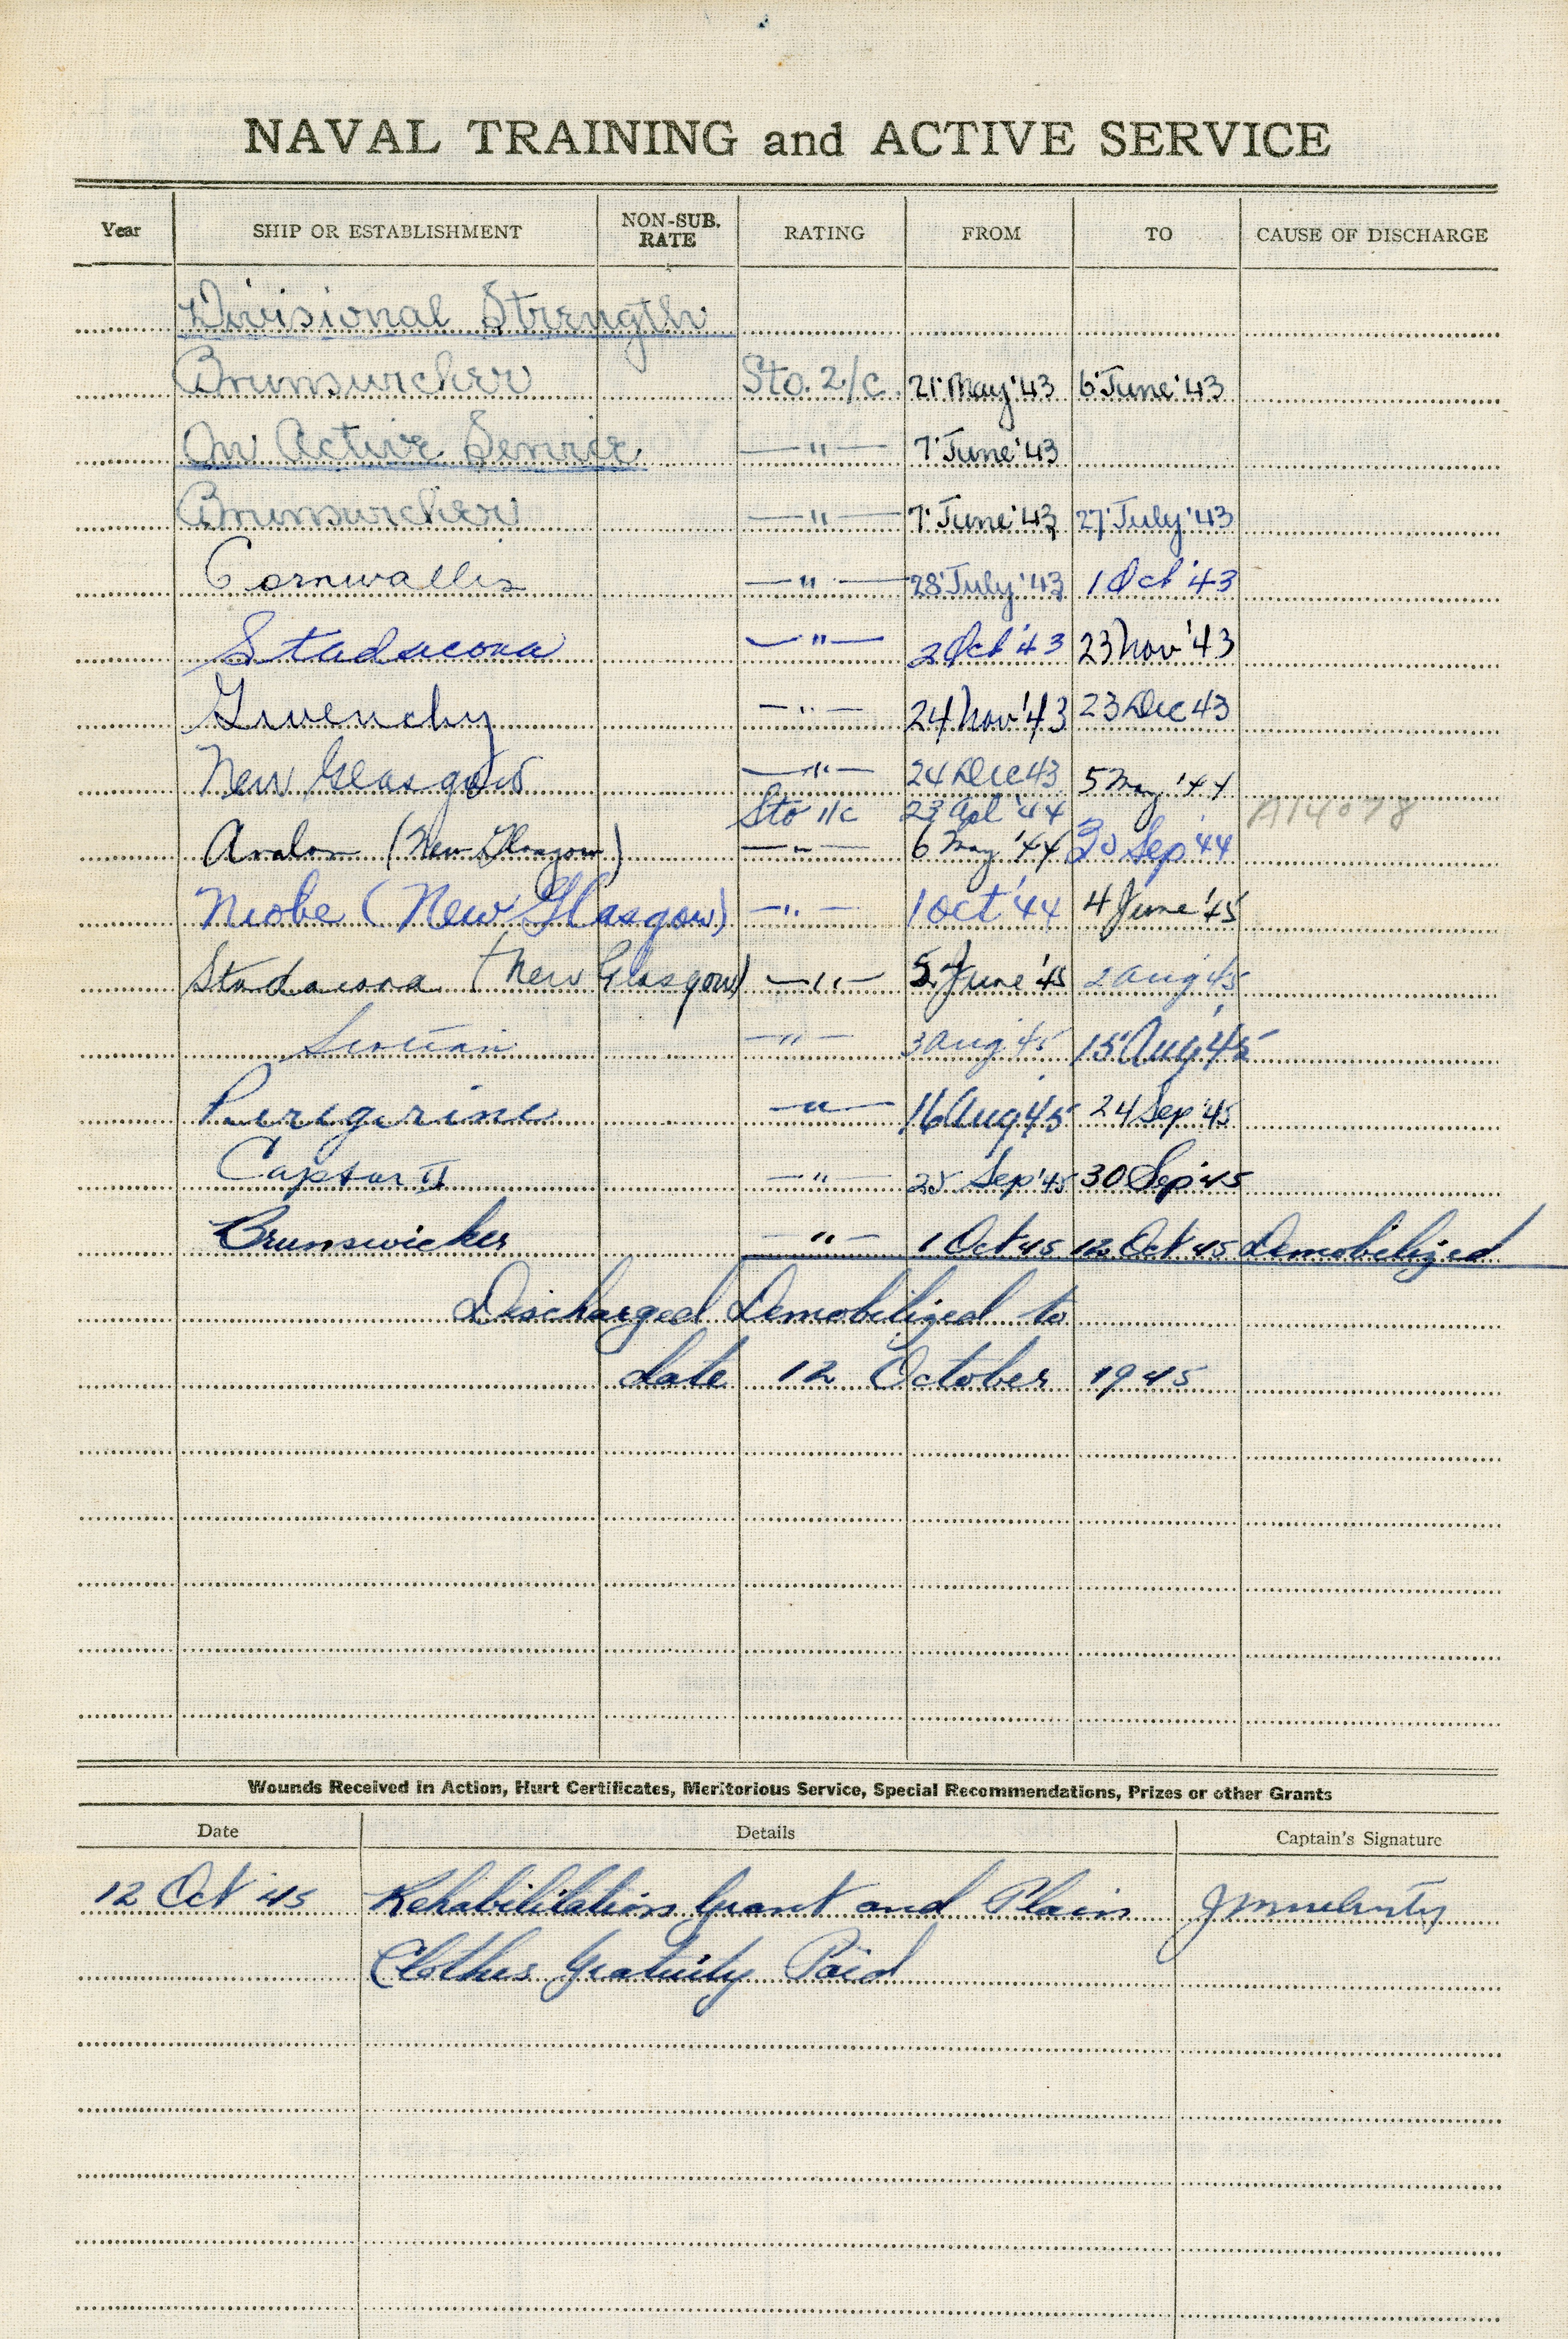 NAVAL TRAINING and ACTIVE SERVICE
Year SHIP OR ESTABLISHMENT NON-SUB. RATE RATING FROM TO CAUSE OF DISCHARGE
Divisional Strength
Brunswicker Sto. 2/c. 21 May '43 6 June '43
On Active Service —"— 7 June '43
Brunswicker —"— 7 June '43 27 July '43
Cornwallis —"— 28 July '43 1 Oct '43
Stadacona —"— 2 Oct '43 23 Nov '43
Givenchy —"— 24 Nov '43 23 Dec 43
New Glasgow —"— 24 Dec 43 5 May '44
Sto 1/c 23 Apl '44 A14078
Avalon (New Glasgow) —"— 6 May '44 30 Sep '44
Niobe (New Glasgow) —"— 1 Oct '44 4 June '45
Stadacona (New Glasgow) —"— 5 June '45 2 Aug '45
Scotian —"— 3 Aug '45 15 Aug '45
Peregrine —"— 16 Aug '45 24 Sep '45
Captor II —"— 25 Sep '45 30 Sep '45
Brunswicker —"— 1 Oct 45 12 Oct 45 Demobilized
Discharged Demobilized to
date 12 October 1945
Wounds Received in Action, Hurt Certificates, Meritorious Service, Special Recommendations, Prizes or other Grants
Date Details Captain's Signature
12 Oct 45 Rehabilitation Grant and Plain
Clothes Gratuity Paid